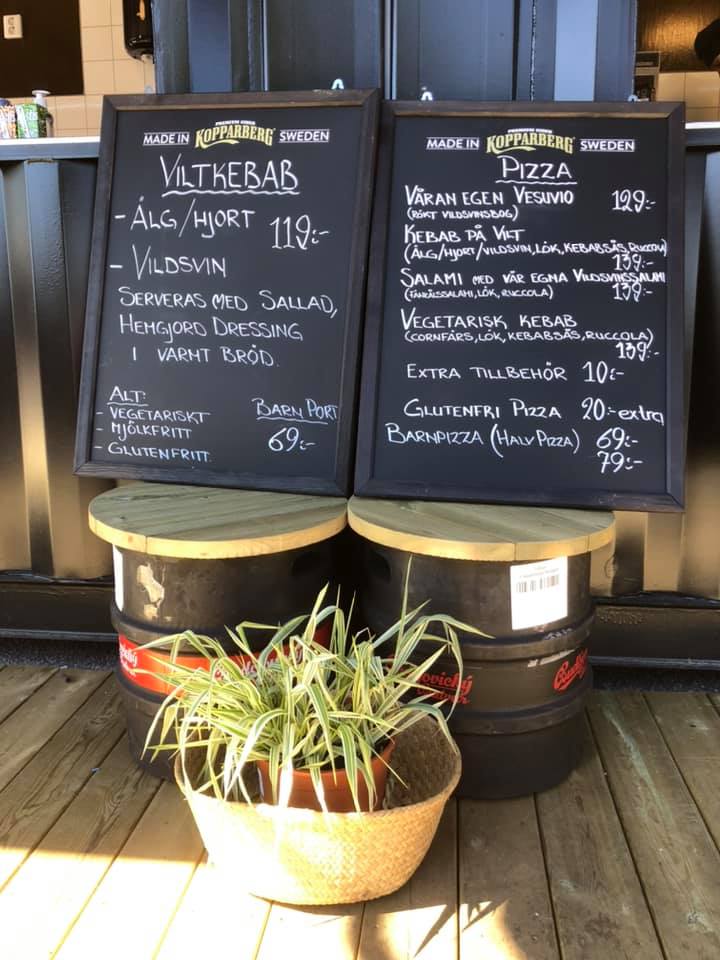 PREMIUM CIDER
MADE IN KOPPARBERG SWEDEN
VILTKEBAB
- ÄLG/HJORT 119:-
- VILDSVIN
SERVERAS MED SALLAD,
HEMGJORD DRESSING
I VARMT BRÖD.
ALT:
- VEGETARISKT
- MJÖLKFRITT
- GLUTENFRITT
BARN PORT
69:-
PREMIUM CIDER
MADE IN KOPPARBERG SWEDEN
PIZZA
VÅRAN EGEN VESUVIO 129:-
(RÖKT VILDSVINSBOG)
KEBAB PÅ VILT
(ÄLG/HJORT/VILDSVIN, LÖK, KEBABSÅS, RUCCOLA)
139:-
SALAMI MED VÅR EGNA VILDSVINSSALAMI
LÖK, RUCCOLA) 139:-
VEGETARISK KEBAB
(CORNFÄRS, LÖK, KEBABSÅS, RUCCOLA)
139:-
EXTRA TILLBEHÖR 10:-
GLUTENFRI PIZZA 20:-extra
BARNPIZZA (HALV PIZZA) 69:-
79:-